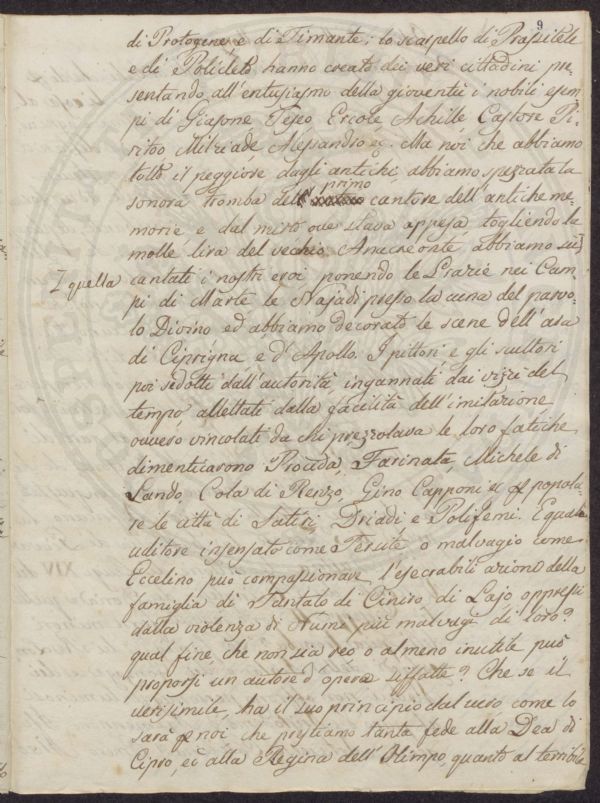 9
di Protogene, e di Timante; lo scarpello di Prassitele
e di Policleto hanno creato dei veri cittadini pre=
sentando all'entusiasmo della gioventù i nobili esem
pi di Giasone Teseo Ercole Achille Castore Pi=
ritoo Milziade Alessandro ec. Ma noi che abbiamo
tolto il peggiore dagli antichi, abbiamo spezzata la
sonora tromba del primo cantore dell'antiche me=
morie e dal mirto ove stava appesa, togliendo la
molle lira del vecchio Anacreonte, abbiamo su
quella cantati i nostri eroi ponendo le Grazie nei Cam
pi di Marte le Najadi presso la cuna del parvo=
lo Divino ed abbiamo decorato le scene dell'ara
di Ciprigna e d'Apollo. I pittori e gli scultori
poi sedotti dall'autorità, ingannati dai vizzi del
tempo, allettati dalla facilità dell'imitazione
ovvero vincolati da chi prezzolava le loro fatiche
dimenticarono Procida, Farinata, Michele di
Lando, Cola di Renzo, Gino Capponi popola=
re le città di Satiri Driadi e Polifemi. E qual
uditore insensato come Tersite o malvagio come
Eccelino può compassionare l'esecrabili azione della
famiglia di Tantalo di Ciniro di Lajo oppressi
dalla violenza di Numi più malvagi di loro?
qual fine, che non sia reo o almeno inutile può
proporsi un autore d'opera siffatte? Che se il
verisimile, ha il suo principio dal vero come lo
sarà noi che prestiamo tanta fede alla Dea di
Cipro, ed alla Regina dell'Olimpo, quanto al terribile